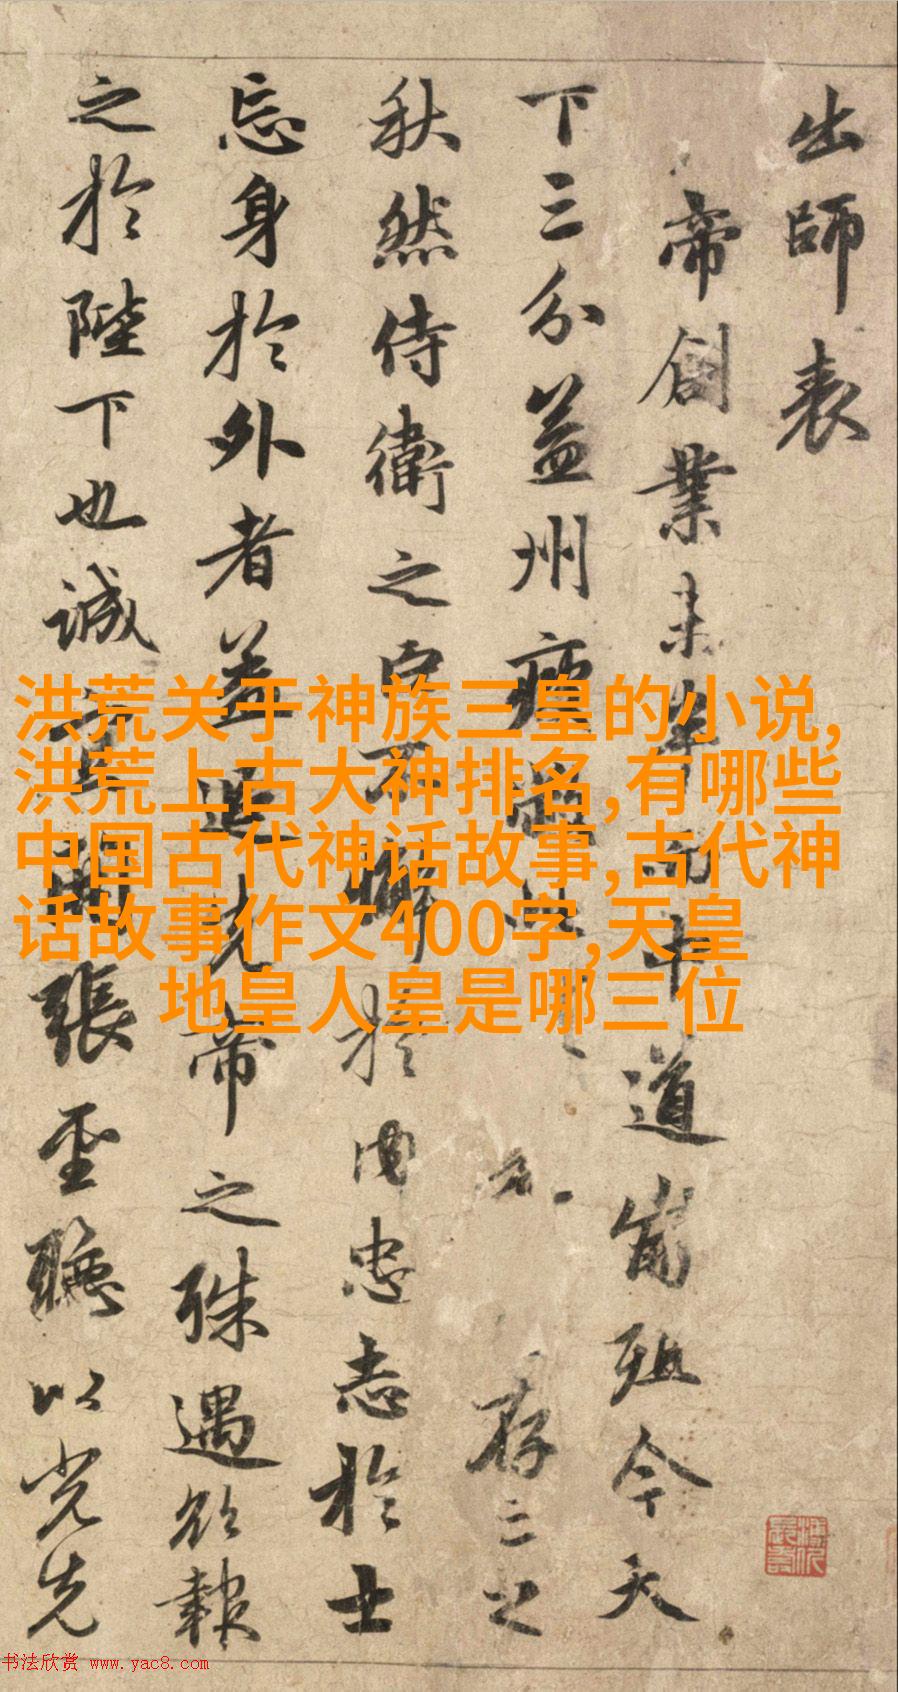 出師表
帝創業未半而中道崩殂今天
下三分益州疲弊此存亡之
秋然侍衛之臣不懈於内忠志於士
忘身於外者蓋追先帝之殊遇欲報
之於陛下也誠宜開張聖聽以光先
洪荒关于神族三皇的小说,
洪荒上古大神排名,有哪些
中国古代神话故事,古代神
话故事作文400字,天皇
地皇人皇是哪三位
书法欣赏 www.yac8.com